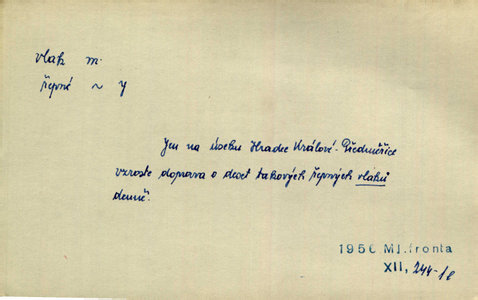 vlak m.
řepné ~ y
Jen na úseku Hradec Králové-Předměřice
vzroste doprava o deset takových řepných vlaků
denně.
1956 Ml.fronta
XII, 244-1e